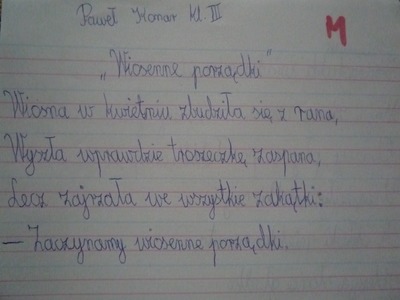 Paweł Konar kl. III
M
„Wiosenne porządki”
Wiosna w kwietniu zbudziła się z rana,
Wyszła wprawdzie troszeczkę zaspana,
Lecz zajrzała we wszystkie zakątki:
– Zaczynamy wiosenne porządki.